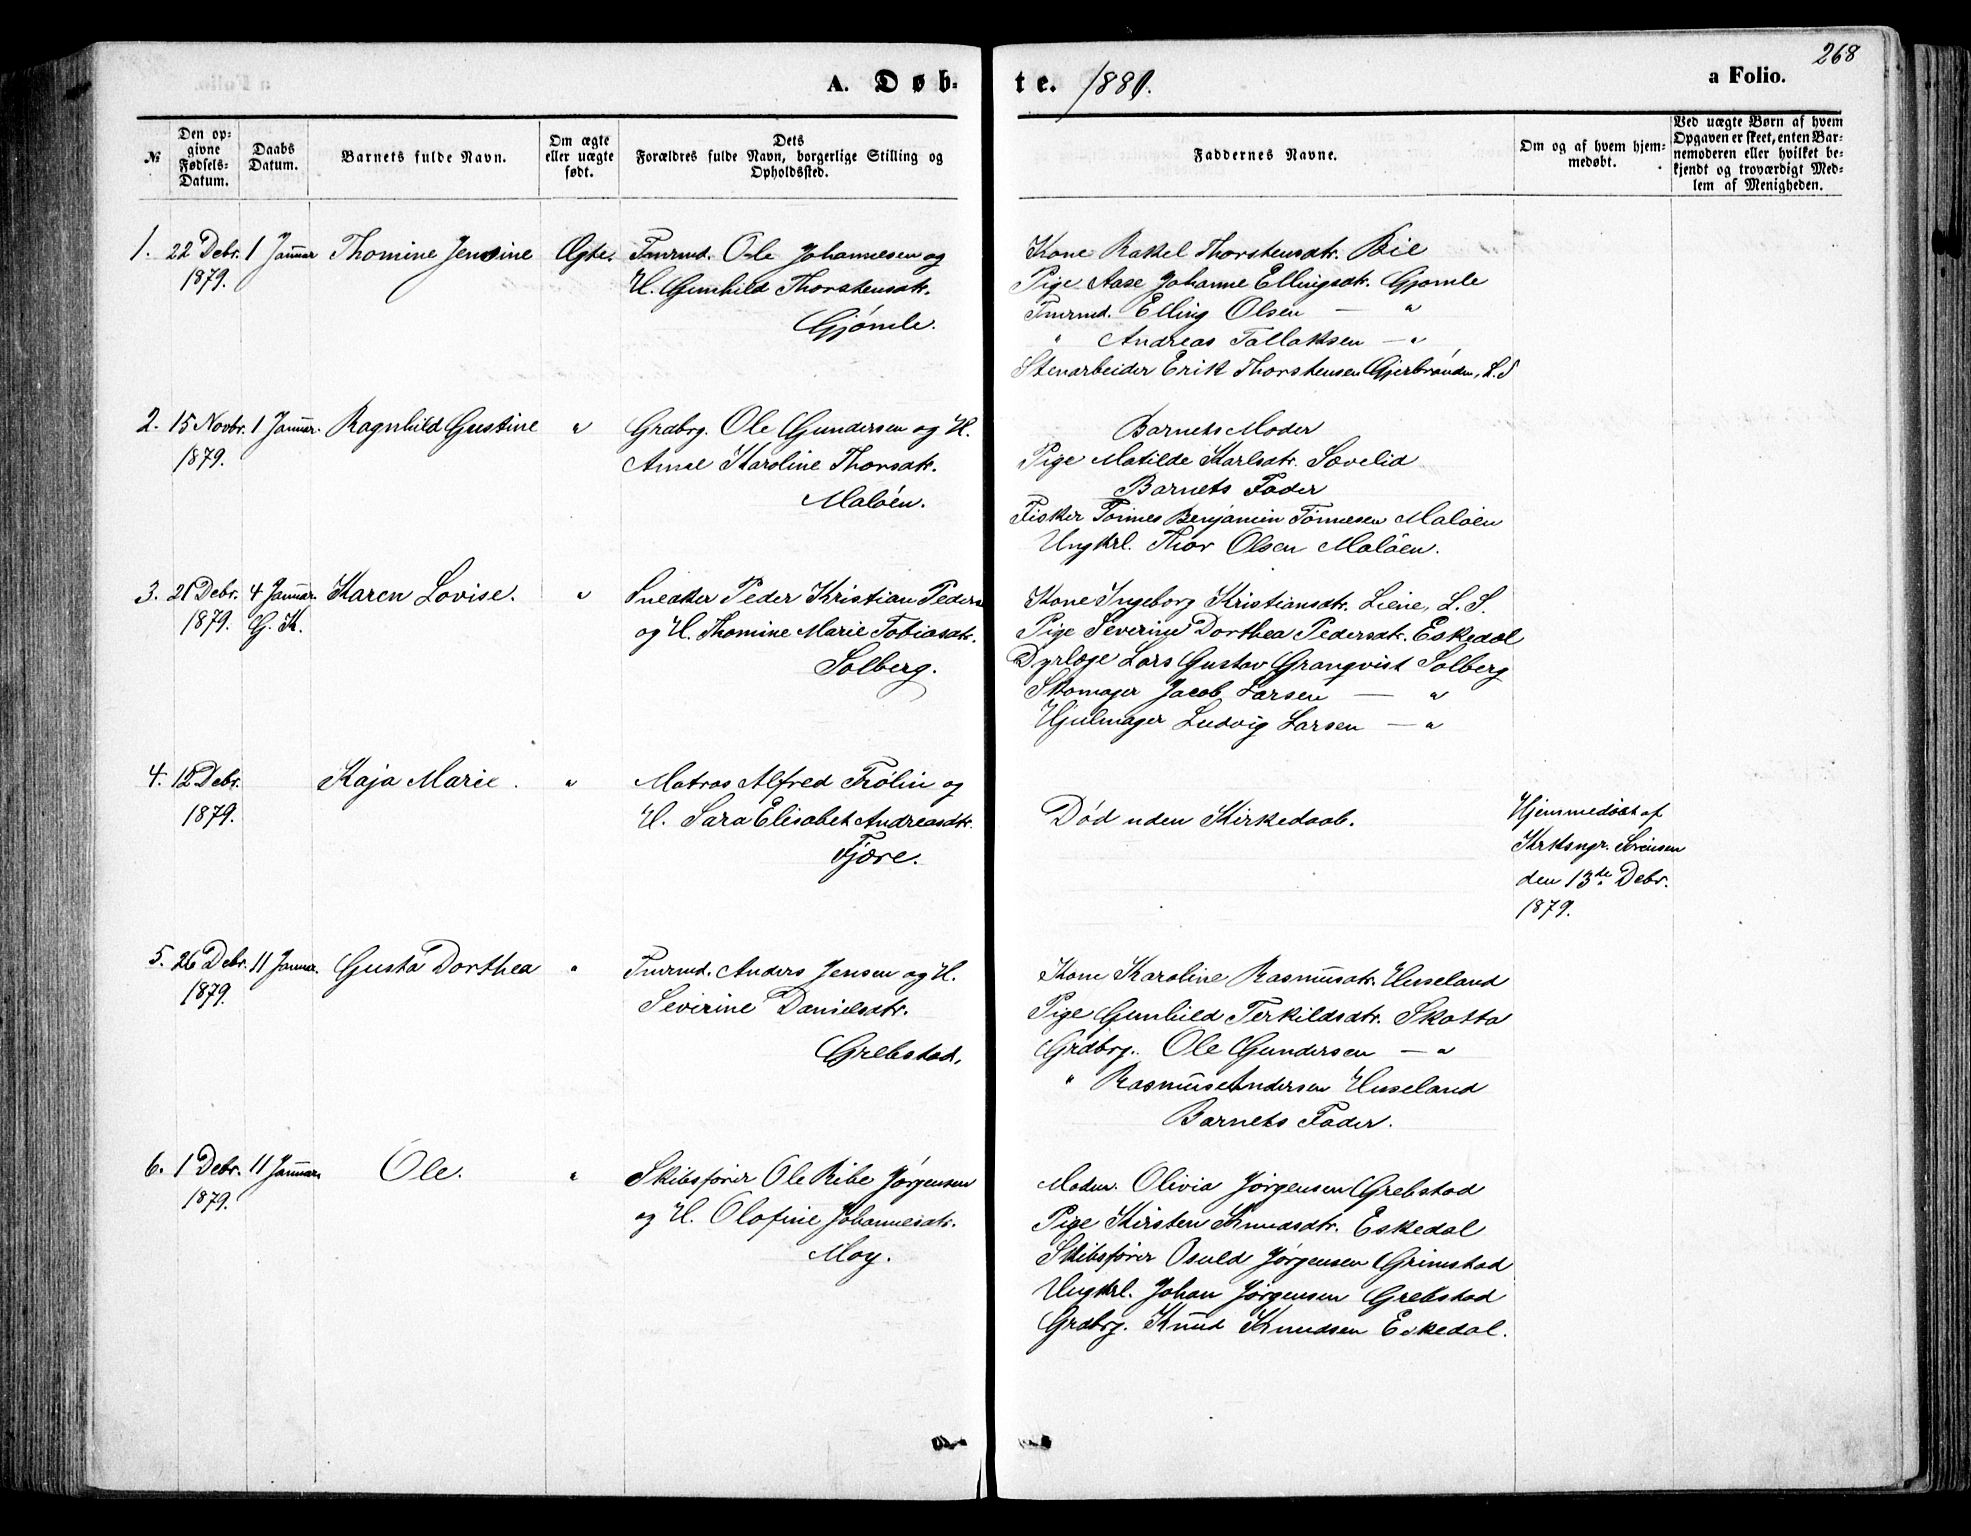 268
A. Døb-
te. 1880.
a Folio.
№
Den op-
givne
Fødsels-
Datum.
Daabs
Datum.
Barnets fulde Navn.
Om ægte
eller uægte
født.
Dets
Forældres fulde Navn, borgerlige Stilling og
Opholdssted.
Faddernes Navne.
Om og af hvem hjem-
medøbt.
Ved uægte Børn af hvem
Opgaven er skeet, enten Bar-
nemoderen eller hvilket be-
kjendt og troværdigt Med-
lem af Menigheden.
1. 22 Debr. 1 Januar Thomine Jensine Ægte. Tmrmd. Ole Johannesen og
1879. H. Gunhild Thorstensdtr.
Gjømle.
Kone Rakel Thorstensdtr. Bie
Pige Aase Johanne Ellingsdtr. Gjømle
Tmrmd. Elling Olsen — "
" Andreas Tallaksen — "
Stenarbeider Erik Thorstensen L. S
2. 15 Novbr. 1 Januar. Ragnhild Gustine " Grdbrg. Ole Gundersen og H.
1879. Anne Karoline Thorsdtr.
Maløen.
Barnets Moder
Pige Matilde Karlsdtr. Sævelid
Barnets Fader
Fisker Tønnes Benjamin Tønnesen Maløen
Ungkrl. Thor Olsen Maløen.
3. 21 Debr. 4 Januar. Karen Lovise. " Snedker Peder Kristian Peders
1879. G. K. og H. Thomine Marie Tobiasdtr.
Solberg.
Kone Ingeborg Kristiansdtr. Liene, L. S.
Pige Severine Dorthea Pedersdtr. Eskedal
Dyrlæge Lars Gustav Granqvist Solberg
Skomager Jacob Larsen — "
Hjulmager Ludvig Larsen — "
4. 12 Debr. Kaja Marie. " Matros Alfred Frølin og
1879. H. Sara Elisabet Andreasdtr.
Fjære.
Død uden Kirkedaab.
Hjemmedøbt af
Krksngr. Sørensen
den 13de Debr.
1879.
5. 26 Debr. 11 Januar. Gusta Dorthea " Tmrmd. Anders Jensen og H.
1879. Severine Danielsdtr.
Grebstad.
Kone Karoline Rasmusdtr. Huseland
Pige Gunhild Terkildsdtr. Skatta
Grdbrg. Ole Gundersen — "
" Rasmus Andersen Huseland
Barnets Fader.
6. 1 Debr. 11 Januar. Ole. " Skibsfører Ole Ribe Jørgensen
1879. og H. Olafine Johannesdtr.
Moy.
Madm. Olivia Jørgensen Grebstad
Pige Kirsten Knudsdtr. Eskedal
Skibsfører Osuld Jørgensen Grimstad
Ungkrl. Johan Jørgensen Grebstad
Grdbrg. Knud Knudsen Eskedal.